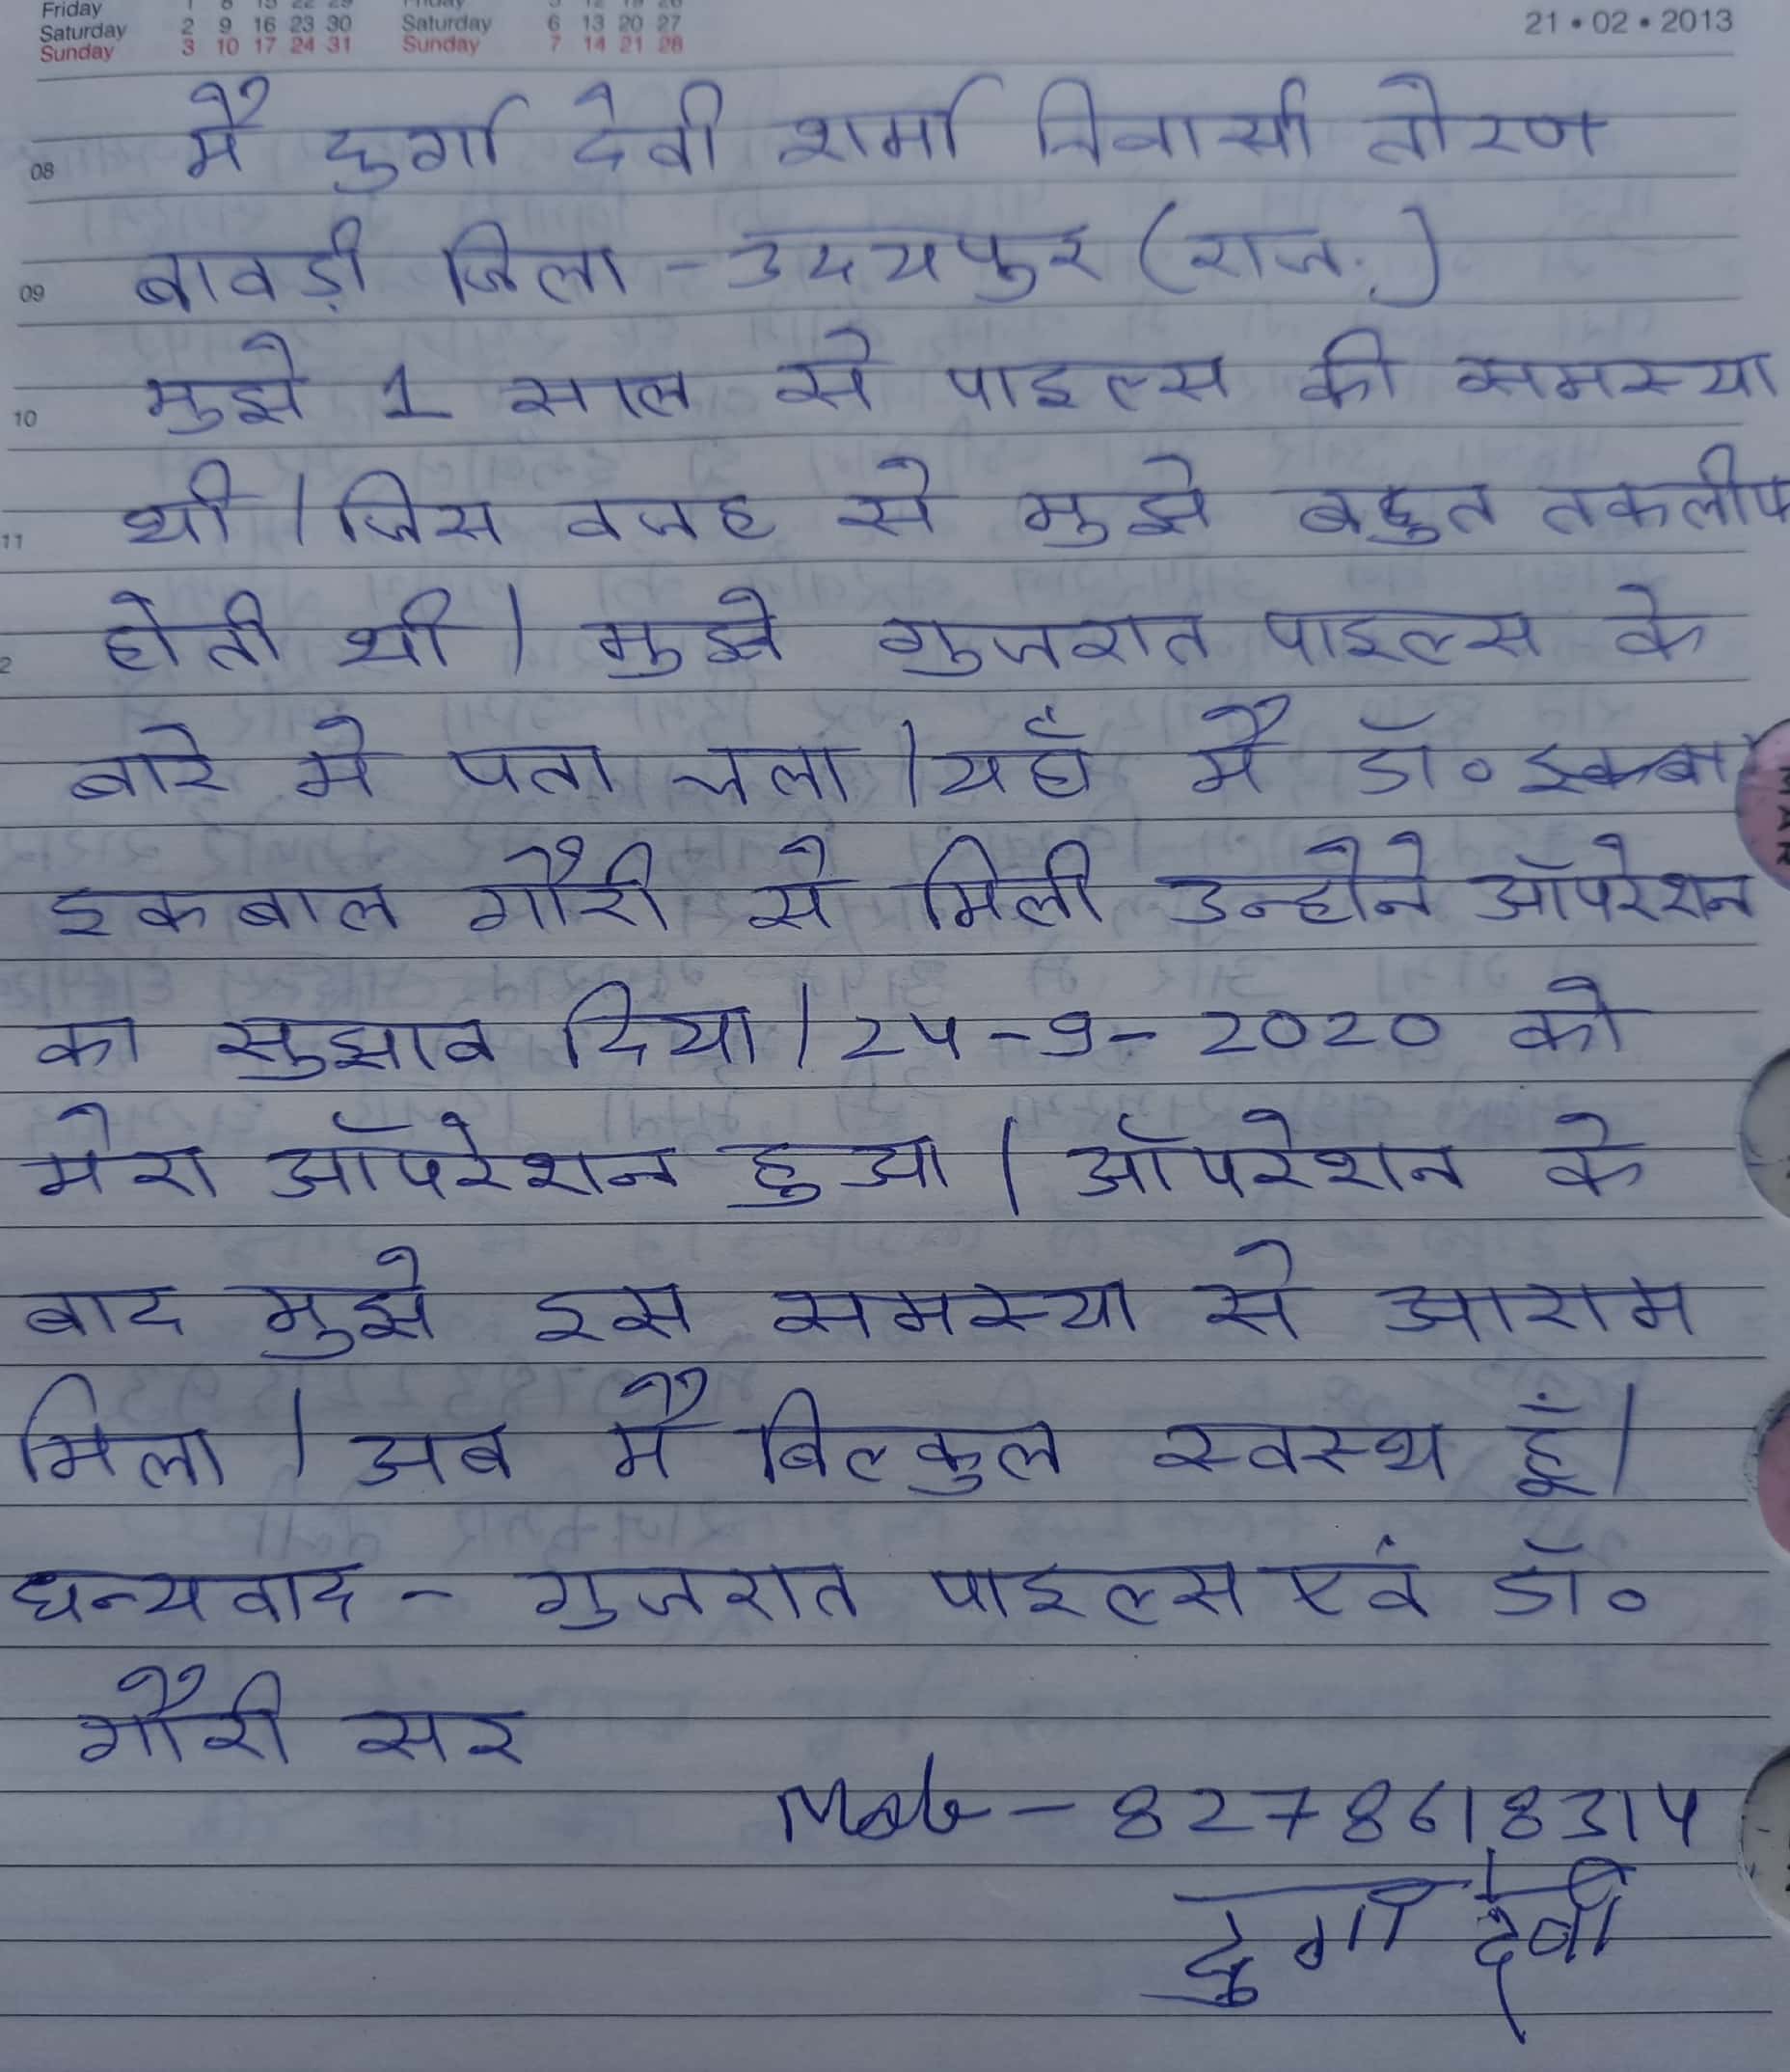 Friday 1 8 15 22 29 Friday 5 12 19 26
Saturday 2 9 16 23 30 Saturday 6 13 20 27
Sunday 3 10 17 24 31 Sunday 7 14 21 28
21 • 02 • 2013
08 मै दुर्गा देवी शर्मा निवासी तोरण
09 बावड़ी जिला - उदयपुर (राज.)
10 मुझे 1 साल से पाइल्स की समस्या
11 थी । जिस वजह से मुझे बहुत तकलीफ
होती थी । मुझे गुजरात पाइल्स के
बारे मे पता चला । यहाँ मै डॉ०
इकबाल गौरी से मिली उन्होने ऑपरेशन
का सुझाव दिया । 24-9-2020 को
मेरा ऑपरेशन हुआ । ऑपरेशन के
बाद मुझे इस समस्या से आराम
मिला । अब मै बिल्कुल स्वस्थ हूँ।
धन्यवाद - गुजरात पाइल्स एवं डॉ०
गौरी सर
Mob - 8278618314
दुर्गा देवी